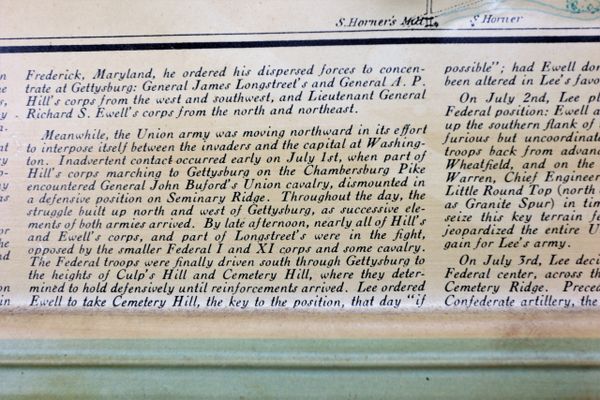 S. Horner's Mill
S. Horner
Frederick, Maryland, he ordered his dispersed forces to concen-
trate at Gettysburg: General James Longstreet's and General A. P.
Hill's corps from the west and southwest, and Lieutenant General
Richard S. Ewell's corps from the north and northeast.
Meanwhile, the Union army was moving northward in its effort
to interpose itself between the invaders and the capital at Washing-
ton. Inadvertent contact occurred early on July 1st, when part of
Hill's corps marching to Gettysburg on the Chambersburg Pike
encountered General John Buford's Union cavalry, dismounted in
a defensive position on Seminary Ridge. Throughout the day, the
struggle built up north and west of Gettysburg, as successive ele-
ments of both armies arrived. By late afternoon, nearly all of Hill's
and Ewell's corps, and part of Longstreet's were in the fight,
opposed by the smaller Federal I and XI corps and some cavalry.
The Federal troops were finally driven south through Gettysburg to
the heights of Culp's Hill and Cemetery Hill, where they deter-
mined to hold defensively until reinforcements arrived. Lee ordered
Ewell to take Cemetery Hill, the key to the position, that day "if
possible"; had Ewell don
been altered in Lee's favo
On July 2nd, Lee pl
Federal position: Ewell a
up the southern flank of
furious but uncoordinate
troops back from advan
Wheatfield, and on the
Warren, Chief Engineer
Little Round Top (north
as Granite Spur) in tim
seize this key terrain fe
jeopardized the entire U
gain for Lee's army.
On July 3rd, Lee deci
Federal center, across th
Cemetery Ridge. Preced
Confederate artillery, the